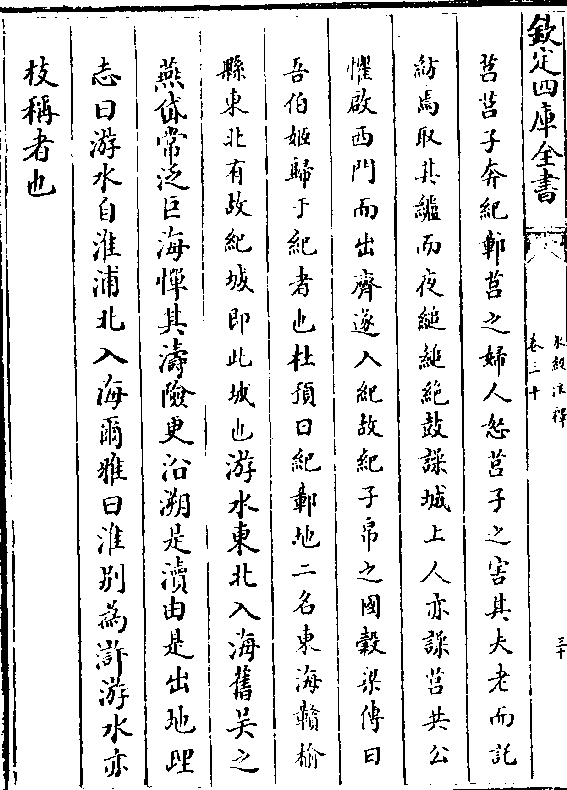 欽定四庫全書
水經注釋
卷三十
三十
莒莒子奔紀鄣莒之婦人怒莒子之害其夫老而託
紡焉取其纑而夜縋縋絶鼓譟城上人亦譟莒共公
懼啟西門而出齊遂入紀故紀子帛之國穀梁傳曰
吾伯姬歸于紀者也杜預曰紀鄣地二名東海贑榆
縣東北有故紀城即此城也游水東北入海舊吴之
燕岱常泛巨海憚其濤險更沿溯是瀆由是出地理
志曰游水自淮浦北入海爾雅曰淮别為滸游水亦
枝稱者也